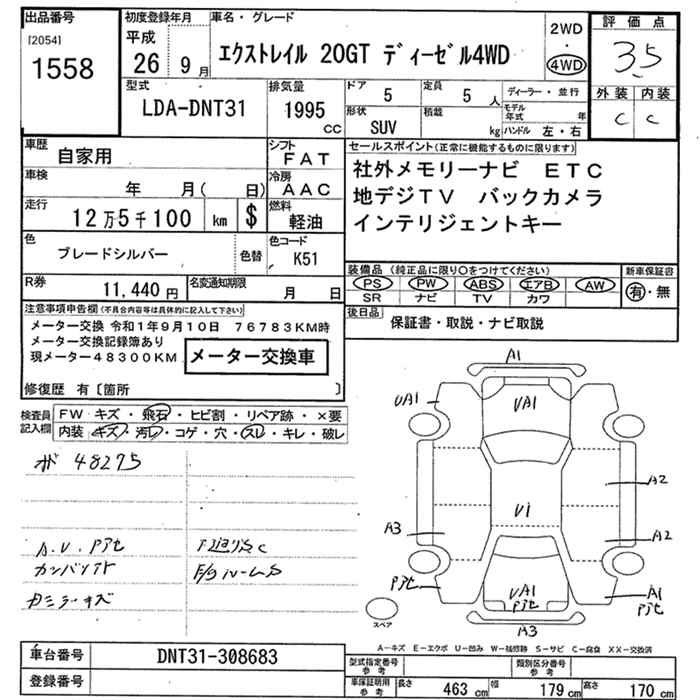 出品番号
[2054]
1558
初度登録年月
平成
26 9月
車名・グレード
エクストレイル 20GT ディーゼル4WD
2WD
・
4WD
評価点
3.5
外装 内装
C C
型式
LDA-DNT31
排気量
1995
CC
ドア
5
定員
5 人
形状
SUV
積載
kg
ディーラー・並行
モデル年式 年
ハンドル 左・右
車歴
自家用
シフト
FAT
車検
年 月( 日)
冷房
AAC
走行
12万5千100 km $
燃料
軽油
色
ブレードシルバー
色替
色コード
K51
R券
11,440円
名変通知期限
月 日
セールスポイント(正常に機能するものに限ります)
社外メモリーナビ ETC
地デジTV バックカメラ
インテリジェントキー
装備品(純正品に限り○をつけてください)
PS PW ABS エアB AW
SR ナビ TV カワ
新車保証書
有・無
後日品
保証書・取説・ナビ取説
注意事項申告欄(不具合内容等は具体的に記入して下さい)
メーター交換 令和1年9月10日 76783KM時
メーター交換記録簿あり
現メーター48300KM
メーター交換車
修復歴 有〔箇所 〕
検査員記入欄
FW キズ・飛石・ヒビ割・リペア跡・×要
内装 キズ・汚レ・コゲ・穴・スレ・キレ・破レ
48275
A1
UA1
UA1
A2
V1
A3
A2
UA1
A1
A3
スペア
A-キズ E-エクボ U-凹み W-補修跡 S-サビ C-腐食 XX-交換済
車台番号
DNT31-308683
登録番号
型式指定番号
参考
類別区分番号
参考
車庫証明用
参考
長さ 463 cm 幅 179 cm 高さ 170 cm